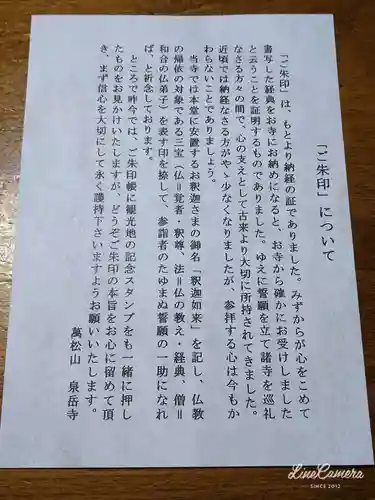 「ご朱印」について
「ご朱印」は、もとより納経の証でありました。みずからが心をこめて
書写した経典をお寺にお納めになると、お寺から確かにお受けしました
と云うことを証明するものでありました。ゆえに誓願を立て諸寺を巡礼
なさる方々の間で、心の支えとして古来より大切に所持されてきました。
近頃では納経なさる方がやゝ少なくなりましたが、参拝する心は今もか
わらないことでありましょう。
当寺では本堂に安置するお釈迦さまの御名「釈迦如来」を記し、仏教
の帰依の対象である三宝（仏＝覚者・釈尊、法＝仏の教え・経典、僧＝
和合の仏弟子）を表す印を捺して、参詣者のたゆまぬ誓願の一助になれ
ば、と祈念しております。
ところで昨今では、ご朱印帳に観光地の記念スタンプをも一緒に押し
たものをお見かけいたしますが、どうぞご朱印の本旨をお心に留めて頂
き、まず信心を大切にして永く護持下さいますようお願いいたします。
萬松山 泉岳寺
LineCamera
SINCE 2012